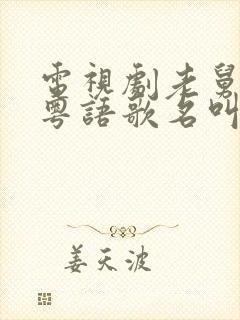 電視劇老舅
粵語歌名叫
姜天波